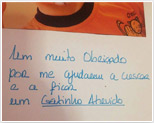 Um muito Obrigado
por me ajudarem a crescer
e a ficar
um Gatinho Atrevido